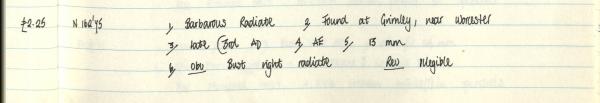 £2.25 N 162'45 1, Barbarous Radiate 2, Found at Grimley, near Worcester
3, Late C3rd AD 4, AE 5, 13 mm
6, Obv Bust right radiate Rev Illegible